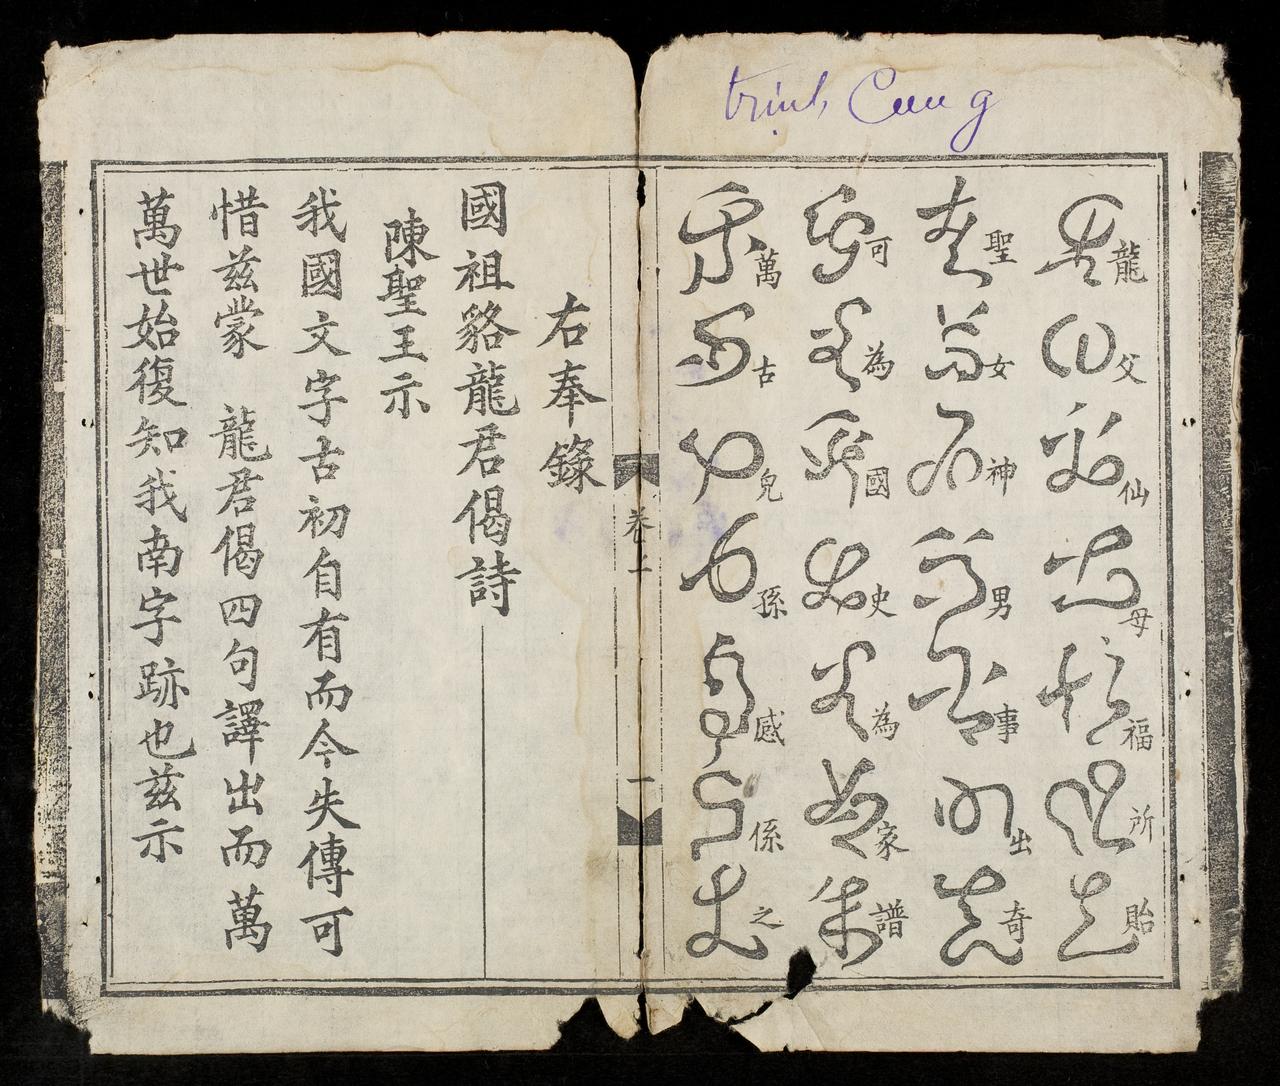 trịnh Cung
龍父仙母福所貽
聖女神男事出奇
可為國史為家譜
萬古兒孫感係之
卷上
一
右奉錄
國祖貉龍君偈詩
陳聖王示
我國文字古初自有而今失傳可
惜兹蒙 龍君偈四句譯出而萬
萬世始復知我南字跡也兹示